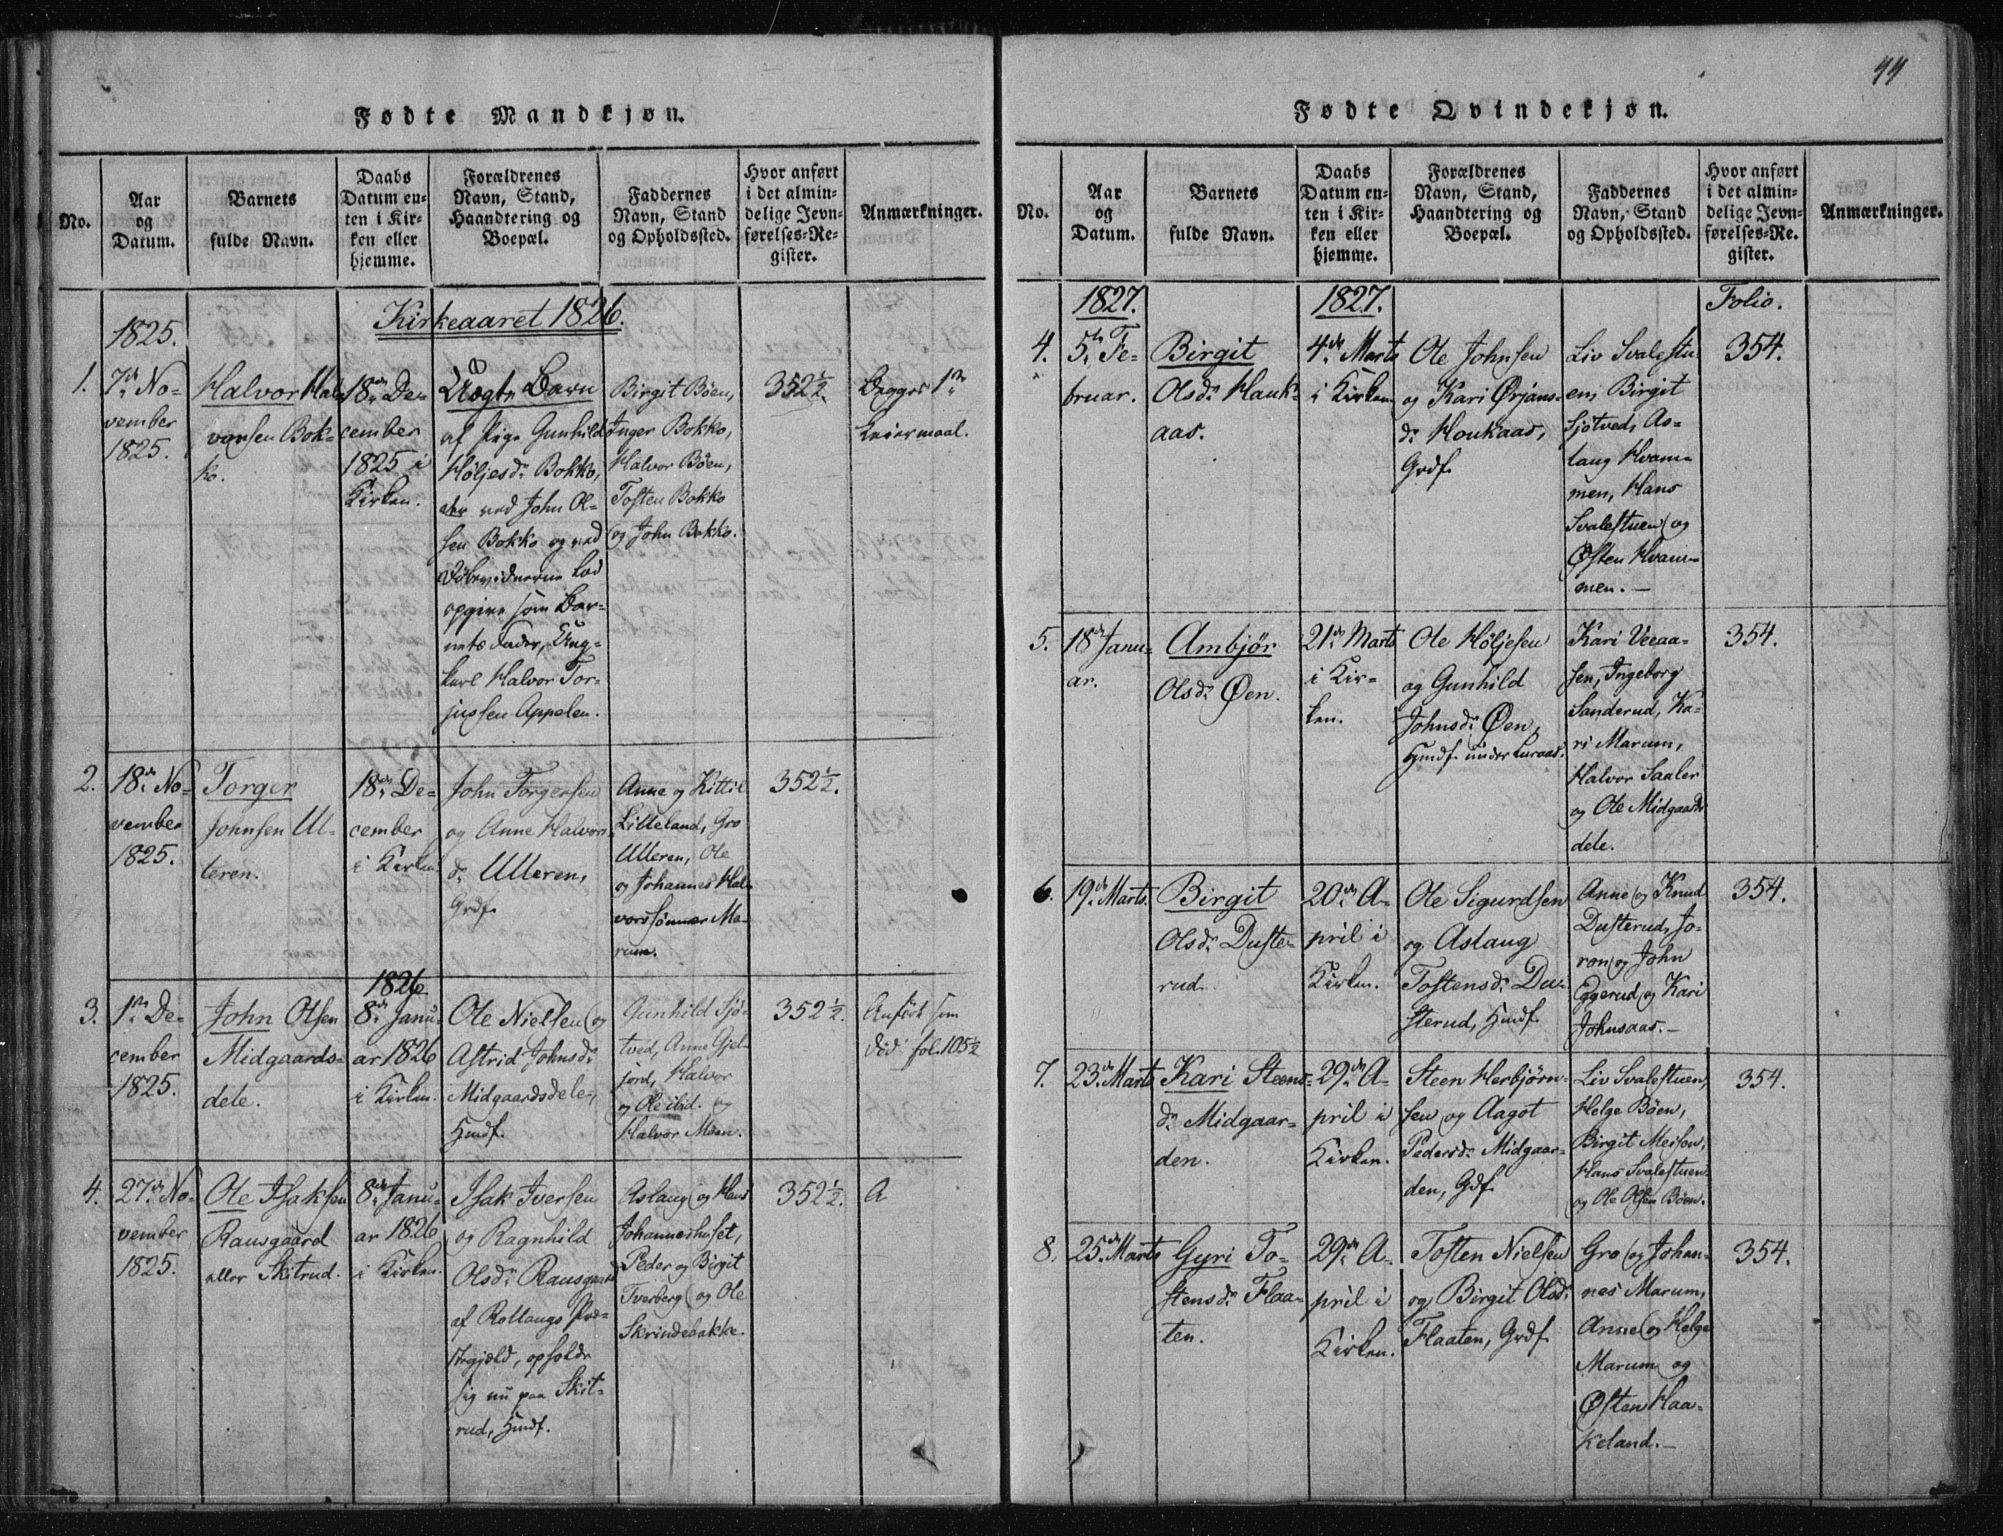 44
Fødte Mandkjøn.
No.
Aar
og
Datum.
Barnets
fulde Navn.
Daabs
Datum en-
ten i Kir-
ken eller
hjemme.
Forældrenes
Navn, Stand,
Haandtering og
Boepæl.
Faddernes
Navn, Stand
og Opholdssted.
Hvor anført
i det almin-
delige Jevn-
førelses-Re-
gister.
Anmærkninger.
Kirkeaaret 1826.
1825.
1.
7de No-
vember
1825.
Halvor Hal-
vorsen Bok-
ko.
18de De-
cember
1825 i
Kirken.
Uægte Barn
af Pige Gunhild
Høljesdr Bokko,
der ved John Ol-
sen Bokko og ved
Døbevidnerne lod
opgive som Bar-
nets Fader, Ung-
karl Halvor Tor-
jussen Appelen.
Birgit Bøen,
Inger Bokko,
Halvor Bøen,
Tosten Bokko
og John Bokko.
352½.
Begges 1ste
Leiermaal.
2.
18de No-
vember
1825.
Torger
Johnsen Ul-
leren.
18de De-
cember
i Kirken.
John Torgersen
og Anne Halvors
dr Ulleren,
Grdf.
Anne og Kittil
Lilleland, Gro
Ulleren, Ole
og Johannes Hal-
vorssønner Ma-
rum.
352½.
3.
1ste De-
cember
1825.
John Olsen
Midgaards-
dele.
1826
8de Janu-
ar 1826
i Kirken.
Ole Nielsen og
Astrid Johnsdr
Midgaardsdele,
Hmdf.
Gunhild Sjø-
tved, Anne Gjel-
jord, Halvor
og Ole ibid. og
Halvor Moen.
352½.
Anført som
død fol. 105½
4.
27de No-
vember
1825.
Ole Isaksen
Rausgaard
eller Skitrud.
8de Janu-
ar 1826
i Kirken.
Isak Iversen
og Ragnhild
Olsdr Rausgaard
af Rollaugs Præ-
stegjæld, opholde
sig nu paa Skit-
rud, Hmdf.
Aslaug og Hans
Johanneshuset,
Peder og Birgit
Tverberg og Ole
Skrindebakke.
352½.
A
Fødte Qvindekjøn.
No.
Aar
og
Datum.
Barnets
fulde Navn.
Daabs
Datum en-
ten i Kir-
ken eller
hjemme.
Forældrenes
Navn, Stand,
Haandtering og
Boepæl.
Faddernes
Navn, Stand
og Opholdssted.
Hvor anført
i det almin-
delige Jevn-
førelses-Re-
gister.
Anmærkninger.
1827.
1827.
Folio.
4.
5te Fe-
bruar.
Birgit
Olsdr Hauk-
aas.
4de Marts
i Kirken.
Ole Johnsen
og Kari Ørjans-
dr Houkaas,
Grdf.
Liv Svalestu-
en, Birgit
Sjøtved, As-
laug Hvam-
men, Hans
Svalestuen og
Østen Hvam-
men.—
354.
5.
18de Janu-
ar.
Ambjør
Olsdr Øen.
21de Marts
i Kir-
ken.
Ole Høljesen
og Gunhild
Johnsdr Øen,
Hmdf. under Luraas.
Kari Veeaa-
sen, Ingeborg
Sanderud, Ka-
ri Marum,
Halvor Saaler
og Ole Midgaards
dele.
354.
6.
19de Marts.
Birgit
Olsdr Duste-
rud.
20de A-
pril i
Kirken.
Ole Sigurdsen
og Aslaug
Tostensdr Du-
sterud, Hmdf.
Anne og Knud
Dusterud, Jo-
ron og John
Eggerud og Kari
Johnsaas.—
354.
7.
23de Marts
Kari Steens-
dr Midgaar-
den.
29de A-
pril i
Kirken.
Steen Herbjørn-
sen og Aagot
Pedersdr Midgaar-
den, Gdf.
Liv Svalestuen,
Helge Bøen,
Birgit Meisen,
Hans Svalestuen
og Ole Olsen Bøen.
354.
8.
25de Marts
Gyri To-
stensdr Flaa-
ten.
29de A-
pril i
Kirken.
Tosten Nielsen
og Birgit Olsdr
Flaaten, Grdf.
Gro og Johan-
nes Marum,
Anne og Helge
Marum og
Østen Haa-
keland.—
354.